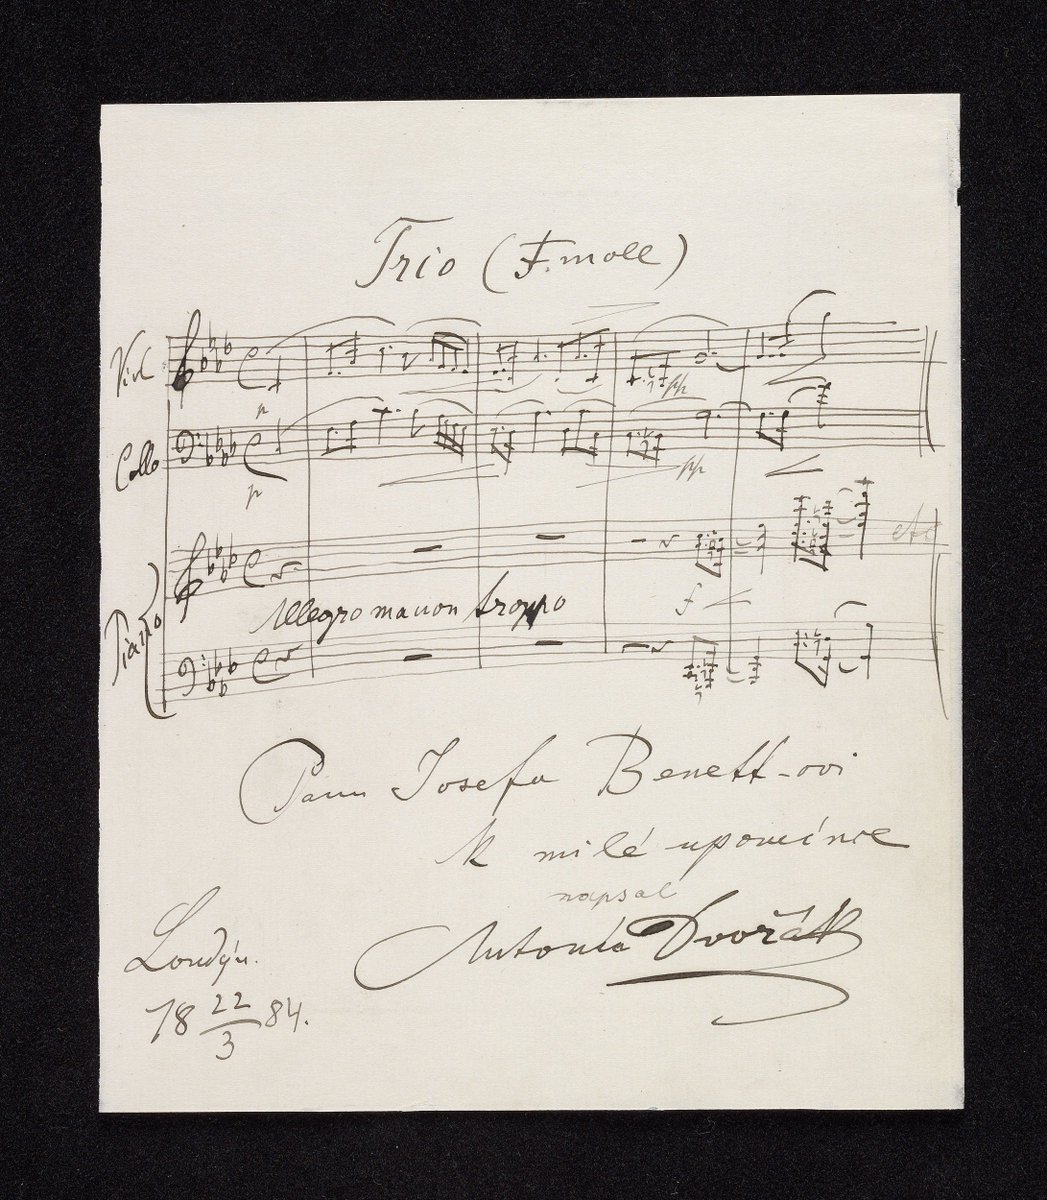 Trio (F. moll)
Viol
p
pp
Cello
p
pp
etc
Piano
Allegro ma non troppo
f
Panu Josefu Benett-ovi
k milé upomínce
napsal
Antonín Dvořák
Londýn.
18 22/3 84.